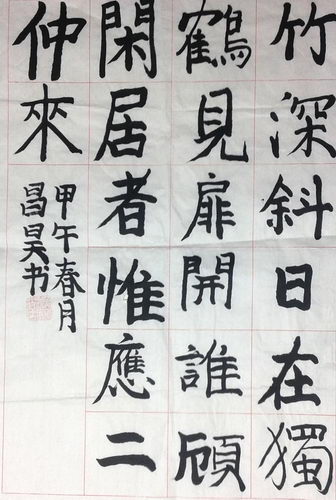 竹深斜日在獨
鶴見扉開誰頋
閑居者惟應二
仲來
甲午春月
昌昊书